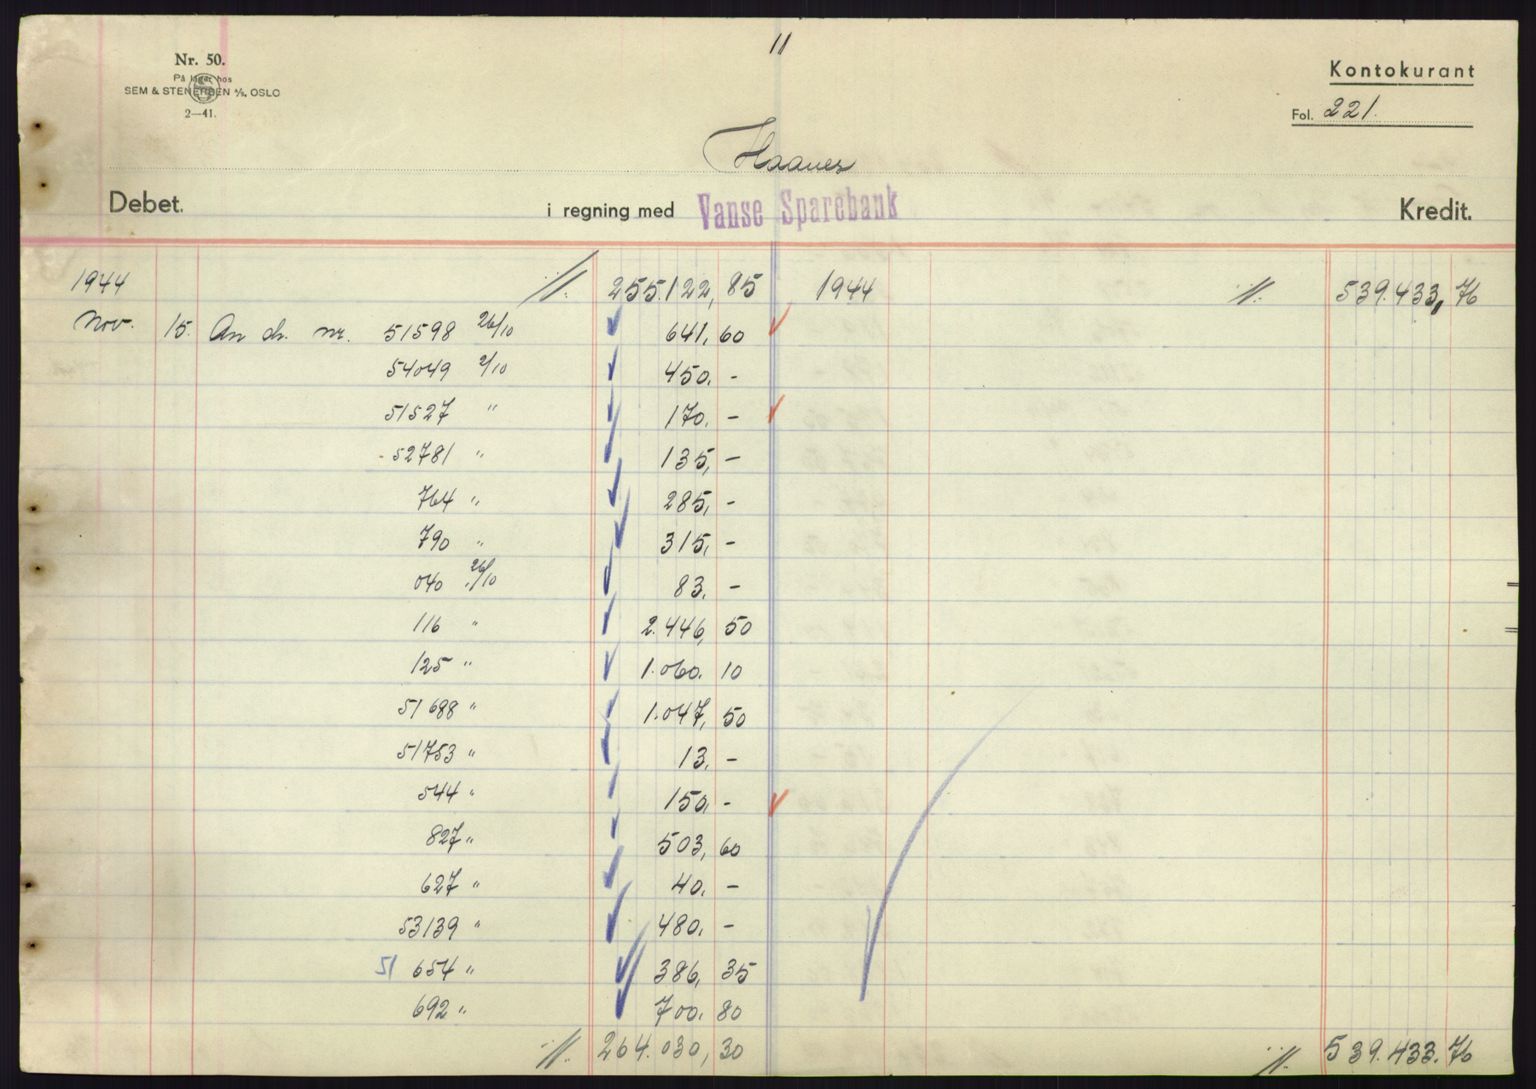 11
Nr. 50.
På lager hos
SEM & STENERSEN A/S, OSLO
2—41.
Kontokurant
Fol. 221.
Haanes
Debet. i regning med Vanse Sparebank Kredit.
1944 255.122,85 1944 539.433,76
Nov. 15. An ch. nr. 51598 26/10 641,60
54049 2/10 450,-
51527 " 170,-
52781 " 135,-
764 " 285,-
790 " 315,-
040 26/10 83,-
116 " 2.446,50
125 " 1.060,10
51688 " 1.047,50
51753 " 13,-
544 " 150,-
827 " 503,60
627 " 40,-
53139 " 480,-
51 654 " 386,35
692 " 700,80
264.030,30 539.433.76